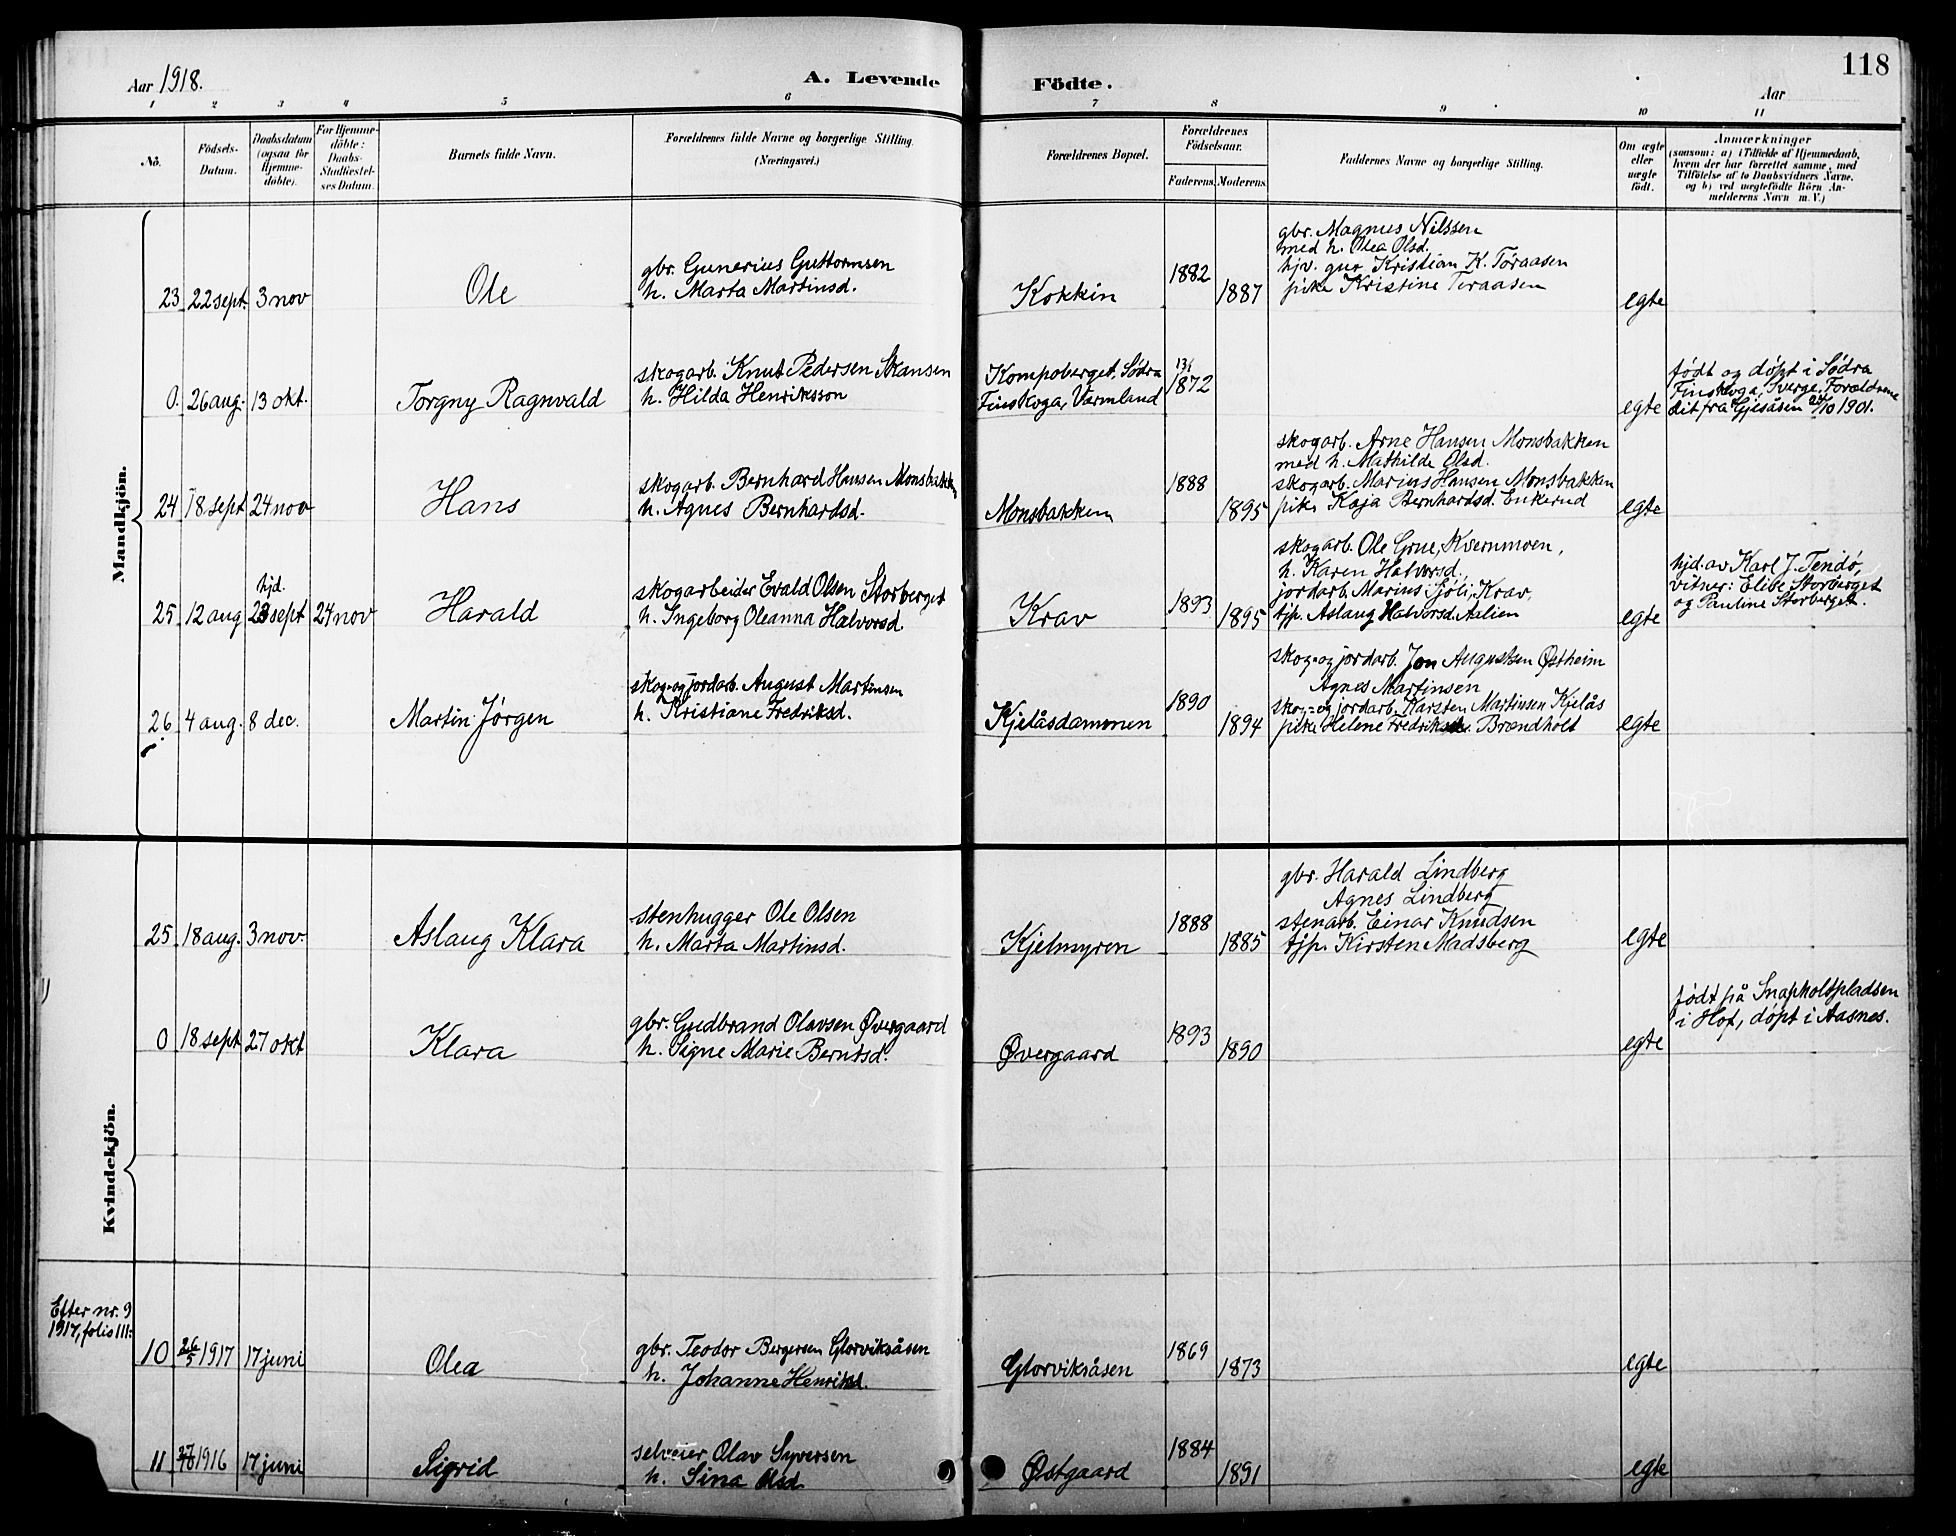 118
Aar 1918.
A. Levende Födte.
Aar
1 2 3 4 5 6 7 8 9 10 11
No.
Födsels-
Datum.
Daabsdatum
(ogsaa for
Hjemme-
döbte).
For Hjemme-
döbte:
Daabs-
Stadfæstel-
ses Datum.
Barnets fulde Navn.
Forældrenes fulde Navne og borgerlige Stilling.
(Næringsvei.)
Forældrenes Bopæl.
Forældrenes
Födselsaar.
Faderens. Moderens.
Faddernes Navne og borgerlige Stilling.
Om ægte
eller
uægte
födt.
Anmærkninger
(saasom: a) i Tilfælde af Hjemmedaab,
hvem der har forrettet samme, med
Tilföielse af to Daabsvidners Navne.
og b) ved uægtefödte Börn An-
melderens Navn m. V.)
Mandkjön.
23 22 sept. 3 nov
Ole
gbr. Gunerius Guttormsen
h. Marta Martinsd.
Kokkin
1882
1887
gbr. Magnus Nilssen
med h. Olea Olsd.
hjv. gut Kristian K. Toraasen
pike Kristine Toraasen
egte
0. 26 aug. 13 okt.
Torgny Ragnvald
skogarb. Knut Pedersen Skansen
h. Hilda Henriksson
Kompoberget, Södra
Finskoga, Värmland
1872
egte
født og døpt i Södra
Finskoga, Sverge, Forældrene
dit fra Gjesåsen 1901.
24 18 sept 24 nov
Hans
skogarb. Bernhard Hansen Monsbakken
h. Agnes Bernhardsd.
Monsbakken
1888
1895
skogarb. Arne Hansen Monsbakken
med h. Mathilde Olsd.
skogarb. Marius Hansen Monsbakken
pike Kaja Bernhardsd. Enkerud
egte
25 12 aug hjd. 23 sept 24 nov
Harald
skogarbeider Evald Olsen Storberget
h. Ingeborg Oleanna Halvorsd.
Krav
1893
1895
skogarb. Ole Grue, Kvernmoen,
h. Karen Halvorsd.,
jordarb. Marius Sjöli, Krav,
tjp. Aslaug Halvorsd. Aalien
egte
hjd. av Karl J. Tendø,
vitner: Elise Storberget
og Pauline Storberget.
26 4 aug. 8 dec.
Martin Jørgen
skog- og jordarb. August Martinsen
h. Kristiane Fredriksd.
Kjelåsdammen
1890
1894
skog- og jordarb. Jon Augustsen Østheim
Agnes Martinsen
skog- og jordarb. Karsten Martinsen Kjelås
pike Helene Fredriksd. Brændholt
egte
Kvindekjön.
25 18 aug. 3 nov.
Aslaug Klara
stenhugger Ole Olsen
h. Marta Martinsd.
Kjelmyren
1888
1885
gbr. Harald Lindberg
Agnes Lindberg
stenarb. Einar Knudsen
tjp. Kirsten Madsberg
egte
0 18 sept 27 okt
Klara
gbr. Gudbrand Olavsen Øvergaard
h. Signe Marie Berntsd.
Øvergaard
1893
1890
egte
født på Snapholtpladsen
i Hof, døpt i Aasnes.
Efter nr. 9
1917, folio 111:
10 26/5 1917 17 juni
Olea
gbr. Teodor Bergersen Glorviksåsen
h. Johanne Henriksd.
Glorviksåsen
1869
1873
egte
11 27/10 1916 17 juni
Sigrid
selveier Olav Syversen
h. Sina Olsd
Østgaard
1884
1891
egte